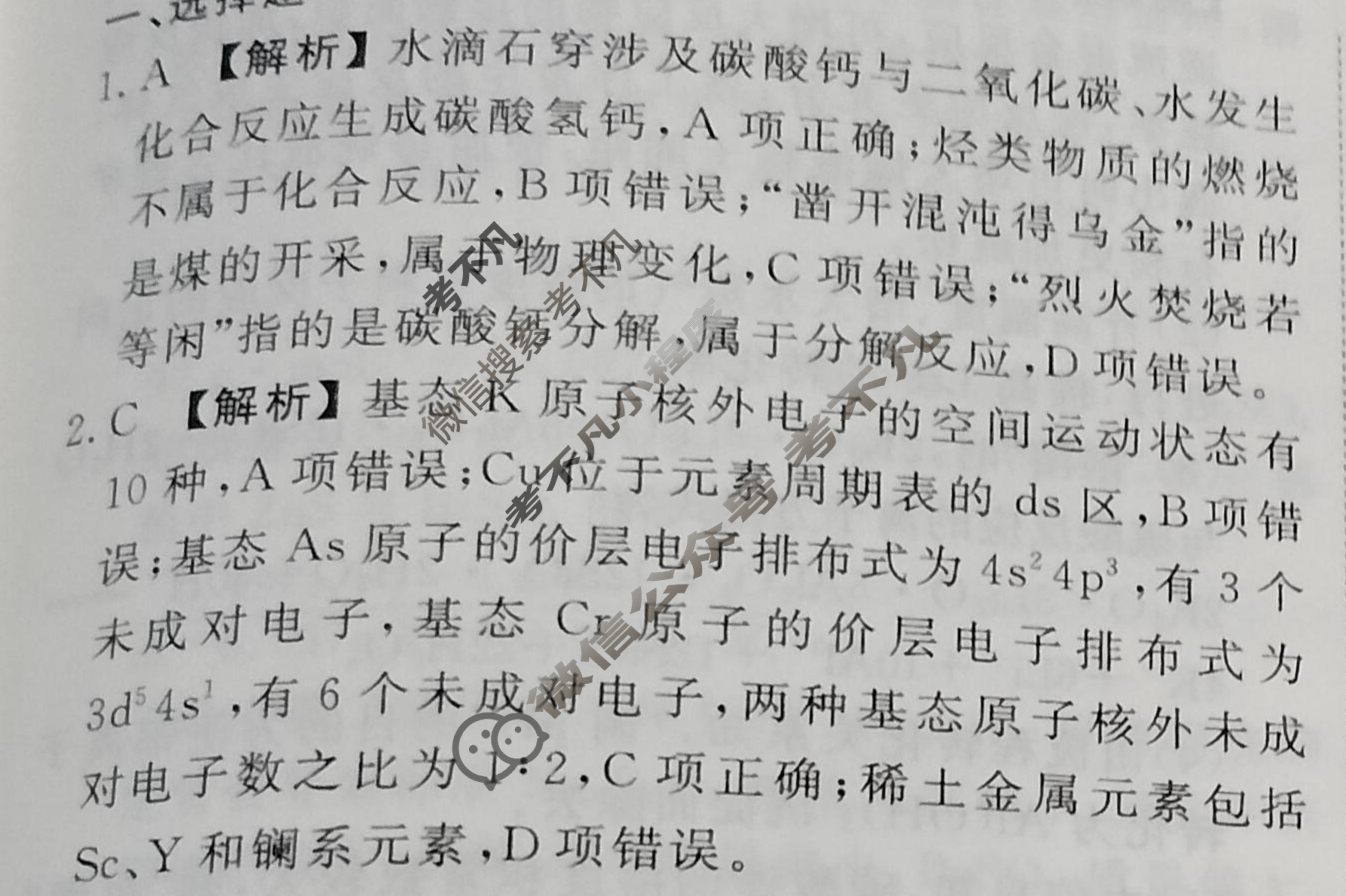 一、选择题
1. A 【解析】水滴石穿涉及碳酸钙与二氧化碳、水发生
化合反应生成碳酸氢钙,A 项正确;烃类物质的燃烧
不属于化合反应,B 项错误;“凿开混沌得乌金”指的
是煤的开采,属于物理变化,C 项错误;“烈火焚烧若
等闲”指的是碳酸钙分解,属于分解反应,D 项错误。
2. C 【解析】基态 K 原子核外电子的空间运动状态有
10 种,A 项错误;Cu 位于元素周期表的 ds 区,B 项错
误;基态 As 原子的价层电子排布式为 4s²4p³,有 3 个
未成对电子,基态 Cr 原子的价层电子排布式为
3d⁵4s¹,有 6 个未成对电子,两种基态原子核外未成
对电子数之比为 1∶2,C 项正确;稀土金属元素包括
Sc、Y 和镧系元素,D 项错误。
考不凡
微信搜索考不凡
考不凡小程序
微信公众号 考不凡